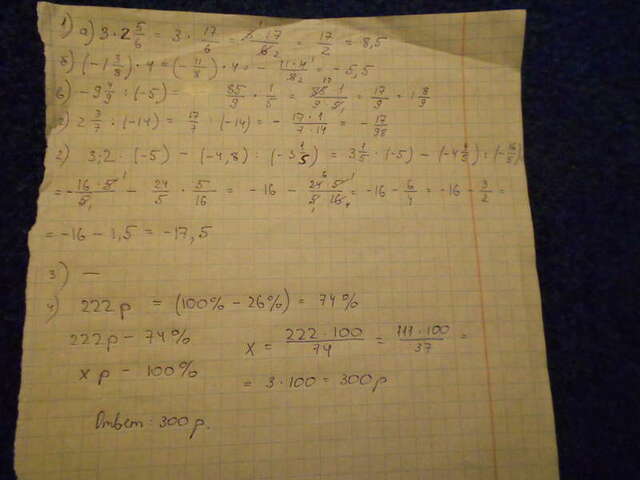 1) а) 3 · 2 5/6 = 3 · 17/6 = 3 · 17 / 6 = 17/2 = 8,5
б) (-1 3/8) · 4 = (- 11/8) · 4 = - 11 · 4 / 8 = - 5,5
в) - 9 4/9 : (-5) = 85/9 · 1/5 = 85 · 1 / 9 · 5 = 17/9 = 1 8/9
2 3/7 : (-14) = 17/7 : (-14) = - 17 · 1 / 7 · 14 = - 17/98
2) 3,2 · (-5) - (-4,8) : (-3 1/5) = 3 1/5 · (-5) - (-4 4/5) : (- 16/5)
= - 16 · 5 / 5 - 24/5 · 5/16 = -16 - 24 · 5 / 5 · 16 = -16 - 6/4 = -16 - 3/2 =
= -16 - 1,5 = -17,5
3) —
4) 222 р = (100% - 26%) = 74%
222 р - 74%
x = 222 · 100 / 74 = 111 · 100 / 37 =
x р - 100%
= 3 · 100 = 300 р
Ответ: 300 р.